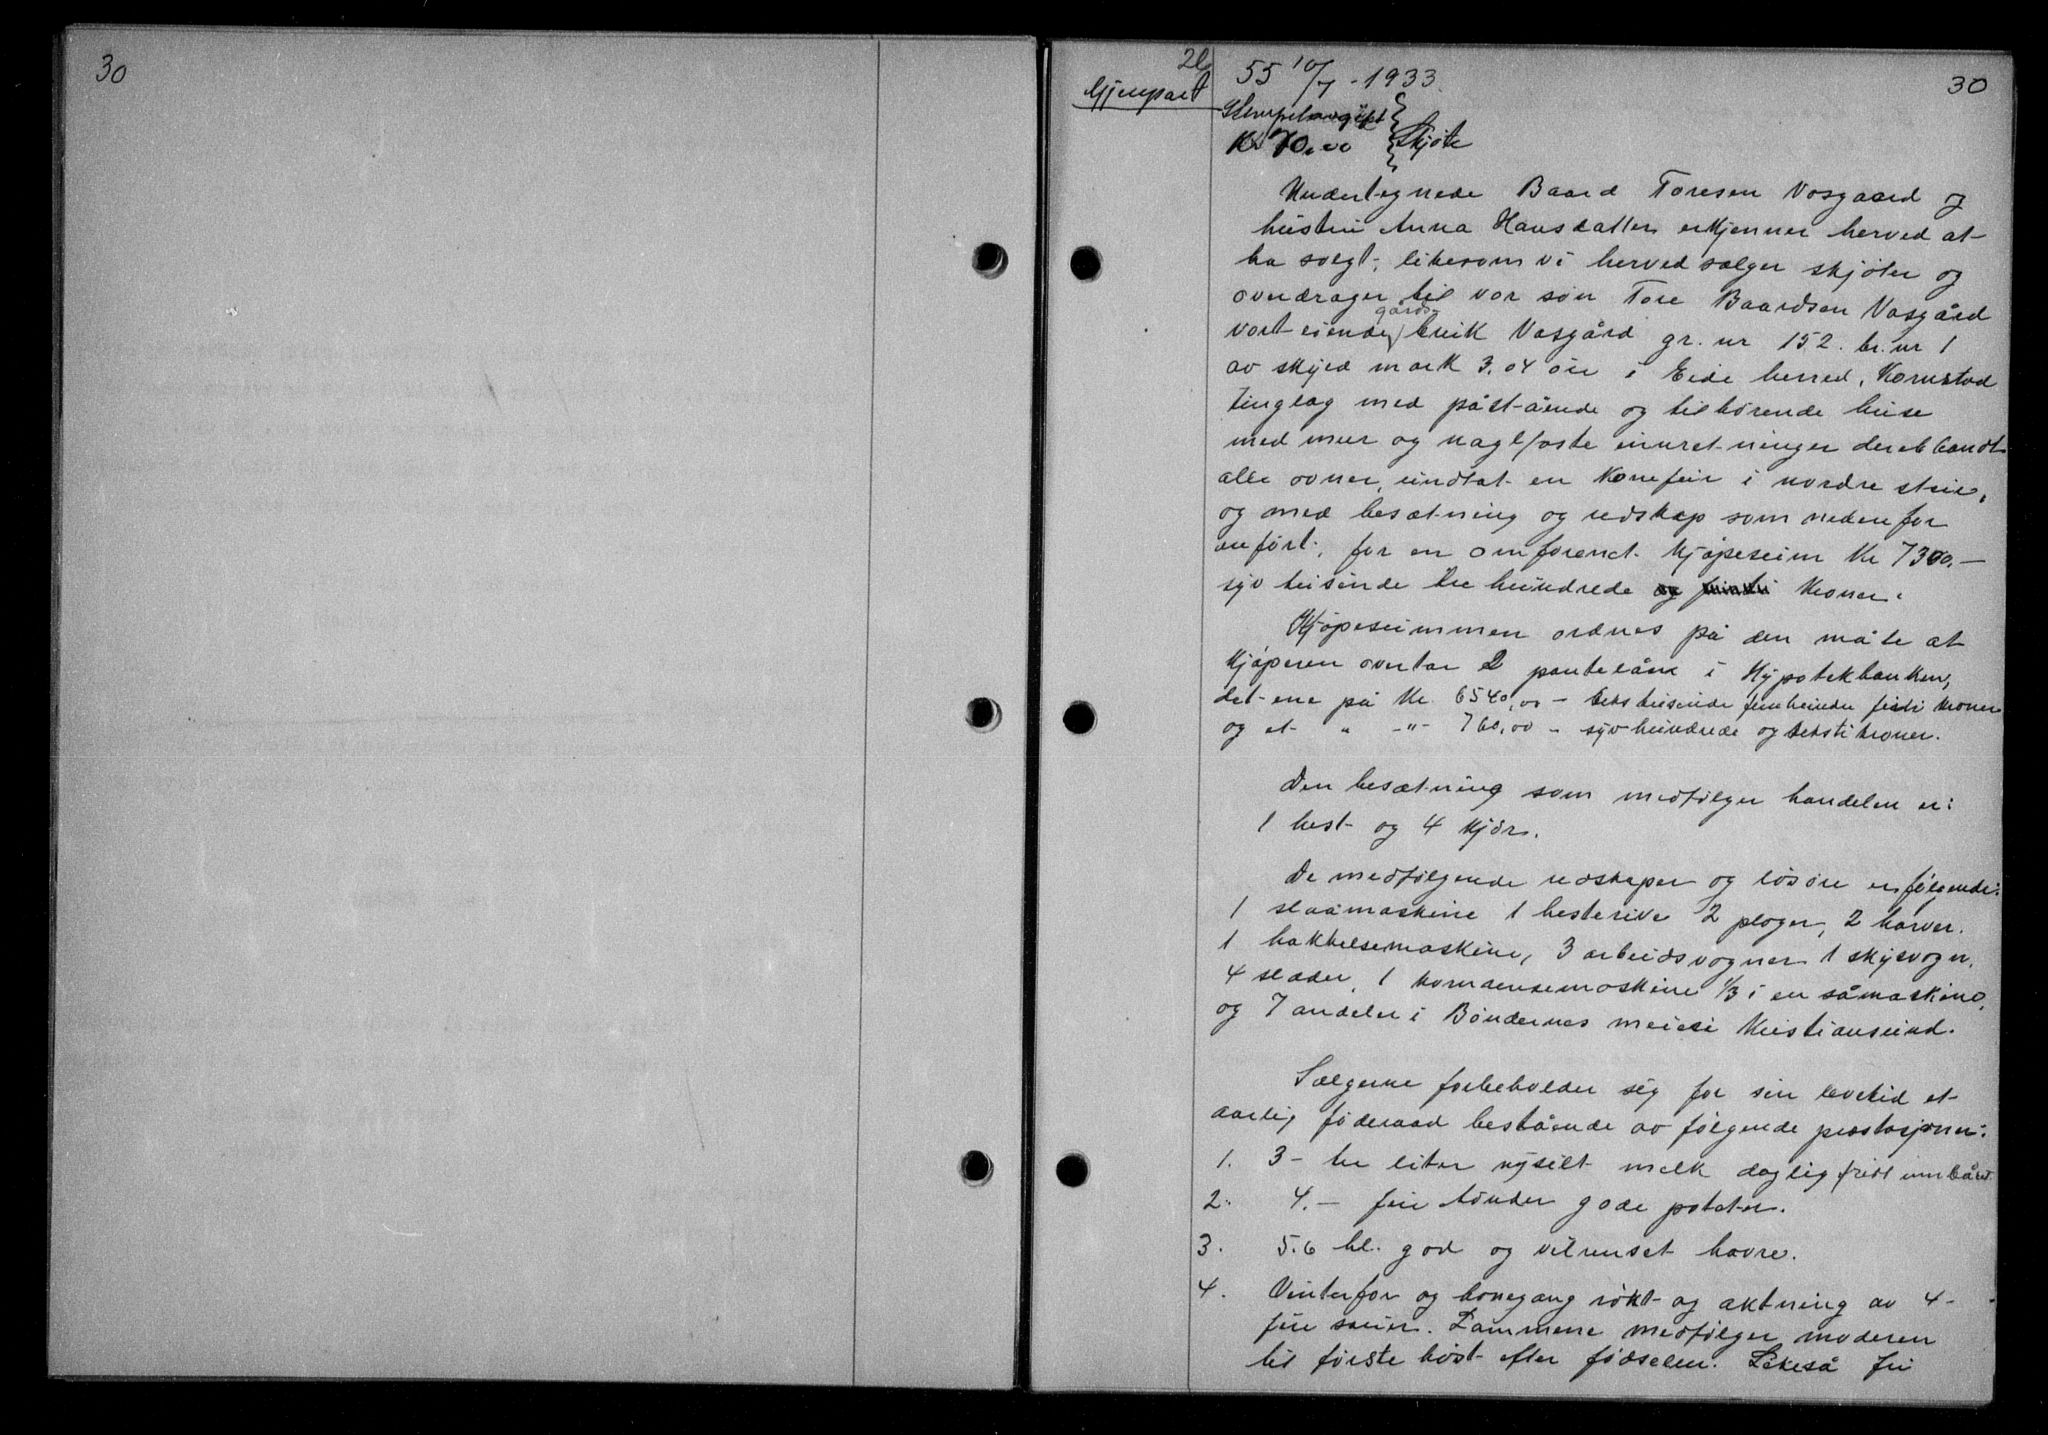 30
2b
Gjenpart
55 10/7-1933.
30
Stempelavgift
Kr 70.00 } Skjøte
Undertegnede Baard Toresen Vosgaard og
hustru Anna Hansdatter erkjenner herved at
ha solgt, likesom vi herved sælger skjøter og
overdrager til vor søn Tore Baardsen Vasgård
vort eiende gårds-bruk Vasgård gr. nr 152. br. nr 1
av skyld mark 3.04 øre i Eide herred, Kornstad
tinglag med påstående og tilhørende huse
med mur og naglfaste innretninger deriblandt
alle ovner, undtat en Konefeir i nordre stue,
og med besætning og redskap som nedenfor
anført, for en omforenet kjøpesum Kr 7300.—
syv tusinde tre hundrede og femti Kroner.
Kjøpesummen ordnes på den måte at
kjøperen overtar 2 pantelån i Hypotekbanken,
det ene på Kr. 6540,00 - seks tusinde femhundre firti kroner
og et " -"- 760,00 - syvhundrede og seksti kroner.
Den besætning som medfølger handelen er:
1 hest og 4 kjør.
De medfølgende redskaper og løsøre er følgende:
1 slaamaskine 1 hesterive 2 ploger, 2 harver.
1 hakkelsemaskine, 3 arbeidsvogner 1 skysvogn,
4 slæder, 1 kornrensemaskine 1/3 i en såmaskine,
og 7 andeler i Bøndernes meieri Kristiansund.
Sælgerne forbeholder sig for sin levetid et
aarlig føderaad bestående av følgende præstasjoner:
1. 3 - tre liter nysilt melk daglig fridt innbåret
2. 4. — fire tønder gode poteter.
3. 5.6 hl. god og velrenset havre.
4. Vinterfor og havnegang røkt og aktning av 4-
fire sauer. Lammene medfølger moderen
til første høst efter fødselen. Likeså fri